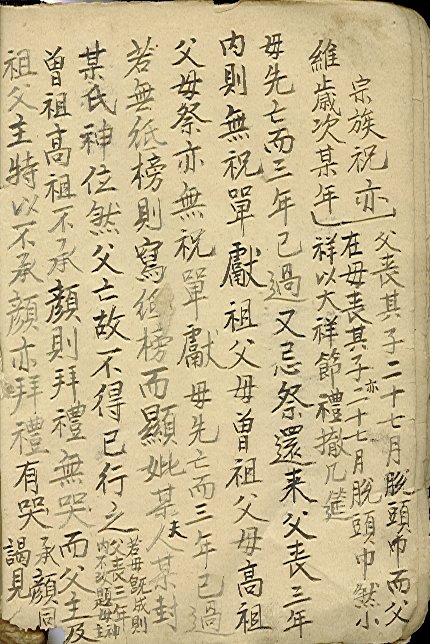 宗族祝亦
維歲次某年
父喪其子二十七月脫頭巾而父
在母喪其子亦二十七月脫頭巾然小
祥以大祥節禮撤几筵
母先亡而三年已過又忌祭還來父喪三年
內則無祝單獻祖父母曾祖父母高祖
父母祭亦無祝單獻母先亡而三年已過
若無紙榜則寫紙榜而顯妣某夫人某封
某氏神位然父亡故不得已行之
若母旣成則
父喪三年
內不改題母主
曾祖高祖不承顏則拜禮無哭而父主及
祖父主特以不承顏亦拜禮有哭
承顏同
謁見